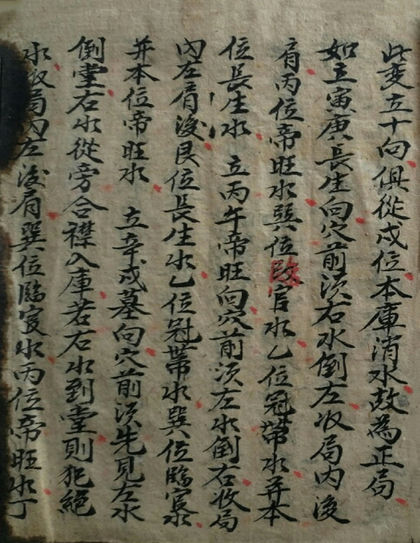 此変立十向俱從戍位本庫消水故為正局
如立寅庚長生向穴前須右水倒左收局內後
肩丙位帝旺水巽位官水乙位冠帶水并本
位長生水 立丙午帝旺向穴前須左水倒右收局
內左肩後艮位長生水乙位冠帶水巽位臨官水
并本位帝旺水 立辛戍墓向穴前須先見左水
倒堂右水從旁合襟入庫若右水到堂則犯絕
水收局內左後肩巽位臨官水丙位帝旺水丁